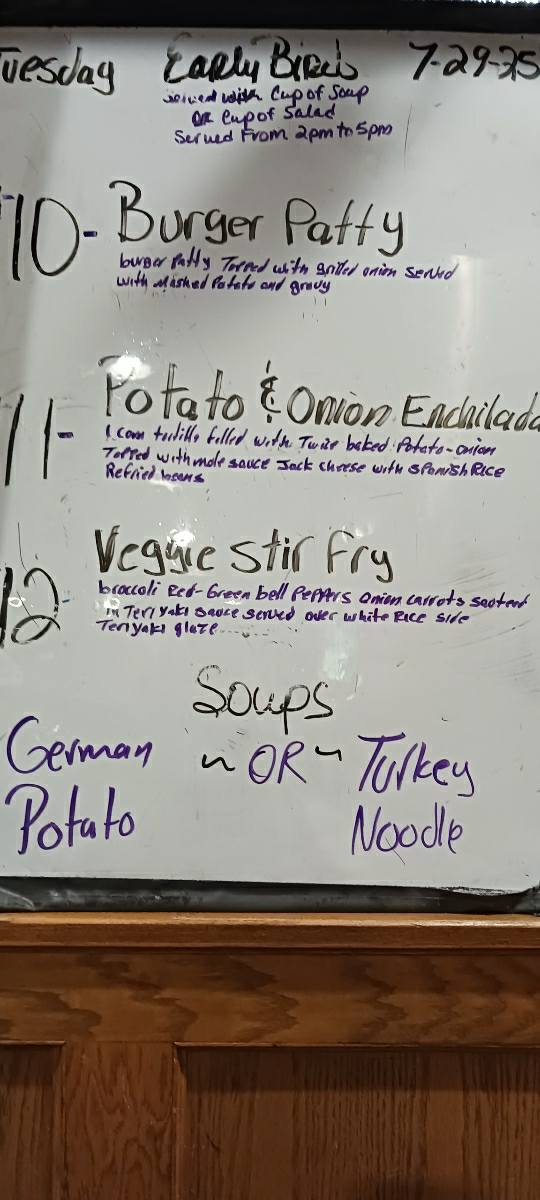 Tuesday Early Birds 7-29-25
served with Cup of Soup
OR Cup of Salad
Served From 2pm to 5pm
10- Burger Patty
burger Patty Topped with grilled onion served
with Mashed Potato and gravy
11- Potato & Onion Enchilada
1 corn tortilla filled with Twice baked Potato-onion
Topped with mole sauce Jack cheese with SPanish Rice
Refried beans
12- Veggie Stir Fry
broccoli Red-Green bell PePPers Onion carrots sauteed
in Teriyaki sauce served over white Rice side
Teriyaki glaze
Soups
German ~ OR ~ Turkey
Potato Noodle